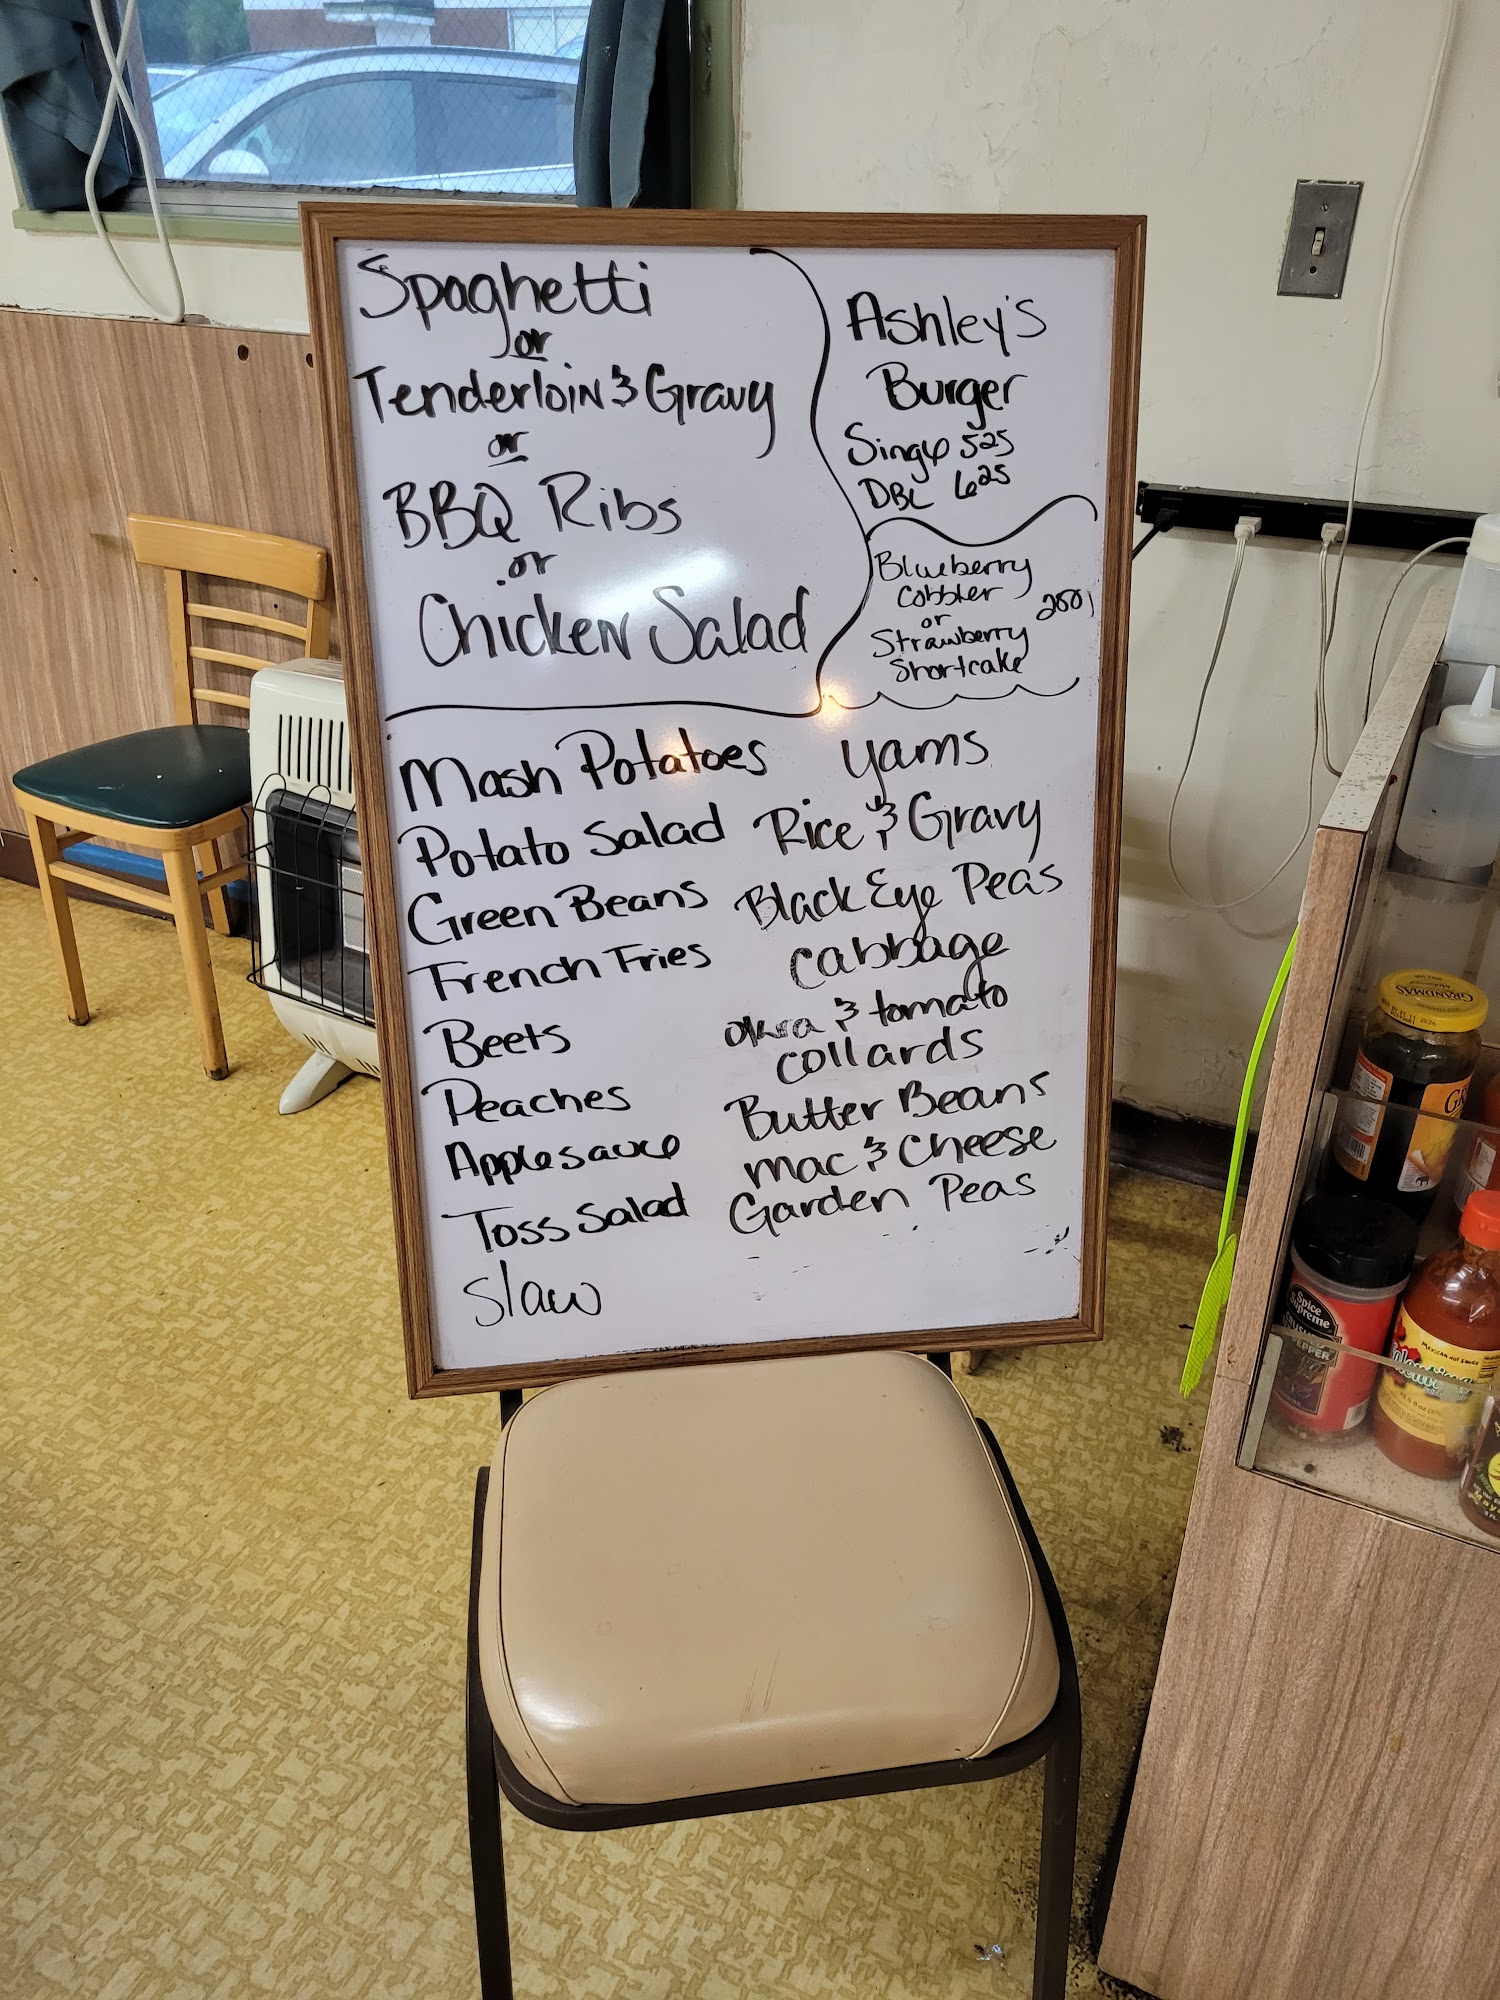 Spaghetti
or
Tenderloin & Gravy
or
BBQ Ribs
or
Chicken Salad
Ashley's
Burger
Single 525
DBL 625
Blueberry
Cobbler
or
Strawberry
Shortcake
200
Mash Potatoes
Potato Salad
Green Beans
French Fries
Beets
Peaches
Applesauce
Toss Salad
Slaw
Yams
Rice & Gravy
Black Eye Peas
Cabbage
Okra & tomato
Collards
Butter Beans
Mac & Cheese
Garden Peas
GRANDMAS
Spice
Supreme
PEPPER
MEXICAN HOT SAUCE